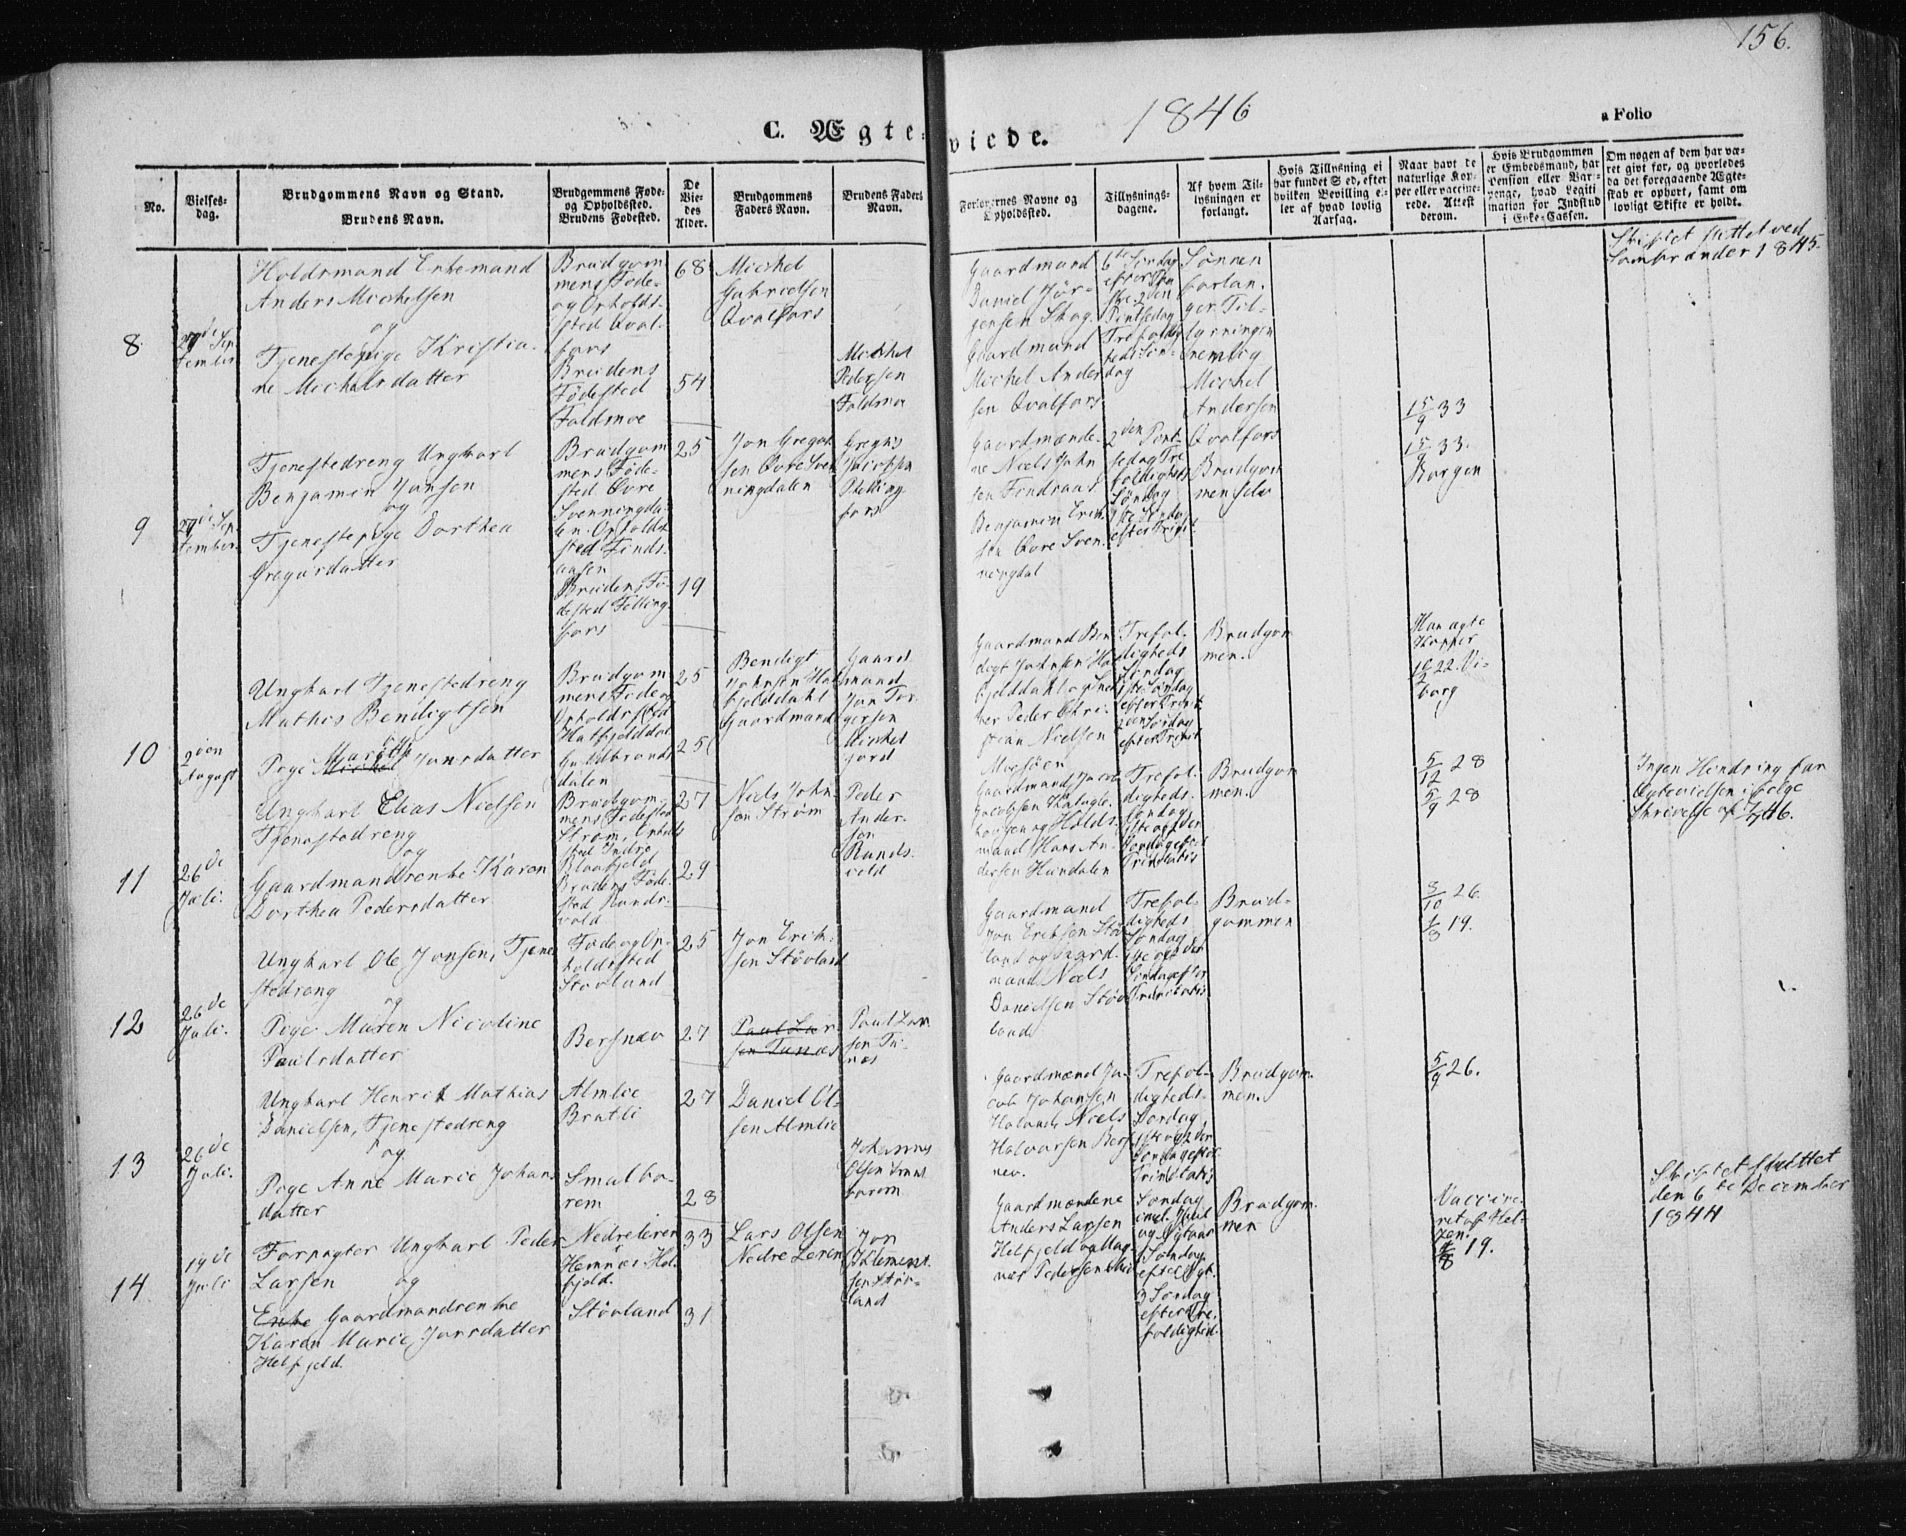 156.
C. Ægteviede.
1846
a Folio
No.
Vielsesdag.
Brudgommens Navn og Stand.
Brudens Navn.
Brudgommens Føde-
og Opholdssted.
Brudens Fødested.
De
Vie-
des
Alder.
Brudgommens
Faders Navn.
Brudens Faders
Navn.
Forlovernes Navne og
Opholdssted.
Tillysnings-
dagene.
Af hvem Til-
lysningen er
forlangt.
Hvis Tillysning ei
har fundet Sted, efter
hvilken Bevilling el-
ler af hvad lovlig
Aarsag.
Naar havt de
naturlige Kop-
per eller vaccine-
rede. Attest
derom.
Hvis Brudgommen
er Embedsmand, har
Pension eller Var-
penge, hvad Legiti
mation for Indskud
i Enke-Cassen.
Om nogen af dem har væ-
ret givt før, og hvorledes
da det foregaaende Ægte-
skab er ophørt, samt om
lovligt Skifte er holdt.
8
27de Sep-
tember
Holdsmand Enkemand
Anders Michelsen
og
Tjenestepige Kristia-
ne Michelsdatter
Brudgom
mens Føde-
og Opholds-
sted Qval-
fors
Brudens
Fødested
Foldmoe
68
54
Michel
Gabrielsen
Qvalfors
Michel
Pedersen
Foldmoe
Gaardmand
Daniel Jør-
gensen Skog
Gaardmand
Michel Ander
sen Qvalfors
6te Søndag
efter Paa
ske 2den
Pintsedag
Trefoldig
heds Søn-
dag
Sønnen
forlan-
ger Til-
lysningen
nemlig
Michel
Andersen
Qvalfors
15/9 33
15/9 33.
Skiftet sluttet ved
1845.
9
27de Sep-
tember
Tjenestedreng Ungkarl
Benjamin Jonsen
og
Tjenestepige Dorthea
Gregusdatter
Brudgom
mens Føde-
sted Øvre
Svenningda-
len. Opholds
sted Finds-
aasen
Brudens Fø-
dested Felling
fors
25
19
Jon Gregus
sen Øvre Sven
ningdalen
Gregus
Jacobsen
Felling-
fors
Gaardmænde-
ne Niels John
sen
Benjamin Erik-
sen Øvre Sven-
ningdal
2den Pint-
sedag Tre
foldigheds
Søndag
1ste Søndag
efter Trinit.
Brudgom
men selv
Borgen
10
2den
August
Ungkarl Tjenestedreng
Mathis Bendigtsen
Pige Michel Marith Jonsdatter
Brudgom
mens Føde og
Opholdssted
Hatfjelddal
Guldbrands
dalen
25
25
Bendigt
Johnsen Hat
fjelddahl
Gaardmand
Gaard
mand
Jon Tor-
gersen
Michel
jord
Gaardmand Ben
digt Johnsen Hat
fjelddahl og
Peder Chri-
stian Nielsen
Mosjøen
Trefol-
digheds
Søndag
1ste Søndag
efter Trinit.
2den Søndag
efter Trinit
Brudgom
men.
Han ægte
Kopper
22. Vi-
borg
11
26de
Juli.
Ungkarl Elias Nielsen
Tjenestedreng
og
Gaardmandsenke Karen
Dorthea Pedersdatter
Brudgom-
mens Fødested
Strøm, Opholds
sted Indre
Blaafjeld
Brudens Føde-
sted Runds-
vold
27
29
Niels John-
sen Strøm
Peder
Ander-
sen
Runds-
vold
Gaardmand Jacob
Jacobsen
og Holds-
mand Hans An-
dersen Hundalen
Trefol-
digheds-
Søndag
1ste og 2den
Søndag efter
Trinitatis
Brudgom
men.
5/12 28
5/9 28
Ingen Hindring for
Ægtevielsen i følge
Skrivelse af 46.
12
26de
Juli.
Ungkarl Ole Jonsen, Tjene
stedreng
og
Pige Maren Nicoline
Paulsdatter
Føde og Op-
holdssted
Støvland
Bersnæv
25
27
Jon Erik-
sen Støvland
Paul Lar-
sen Tunæs
Paul Lar
sen Tu-
næs
Gaardmand
Jon Eriksen Støv
land og Gaard-
mand Niels
Danielsen Støv
land
Trefol-
digheds
Søndag
1ste og 2den
Søndag efter
Trinitatis
Brud-
gommen
3/10 26.
1/8 19.
13
26de
Juli.
Ungkarl Henrik Mathias
Danielsen, Tjenestedreng
og
Pige Anne Marie Johans
datter
Almlie
Bratli
Smalbo-
rem
27
28
Daniel Ol-
sen Almlie
Johannes
Olsen Smal
borem
Gaardmænd Ja-
cob Johansen
Holand, Niels
Halvorsen Bers-
nev.
Trefol-
digheds-
Søndag,
1ste og 2den
Søndag efter
Trinitatis
Brudgom-
men.
5/9 26.
14
19de
Juli
Forpagter Ungkarl Peder
Larsen og
Enke Gaardmandsenke
Karen Marie Jonsdatter
Helfjeld.
Nedreleren
Hemnæs Hel-
fjeld.
Støvland
33
31
Lars Olsen
Nedre Leren
Jon
Klement
sen Støv-
land
Gaardmændene
Anders Larsen
Helfjeld og Mag-
nus Pedersen
Søndag
Juul
og Nytaar
1 Søndag
efter Nyt.
3 Søndag
efter Tre-
foldighed.
Brudgom
men
Vaccine-
ret af Hel-
zen.
1/8 19.
Skiftet sluttet
den 6te December
1844